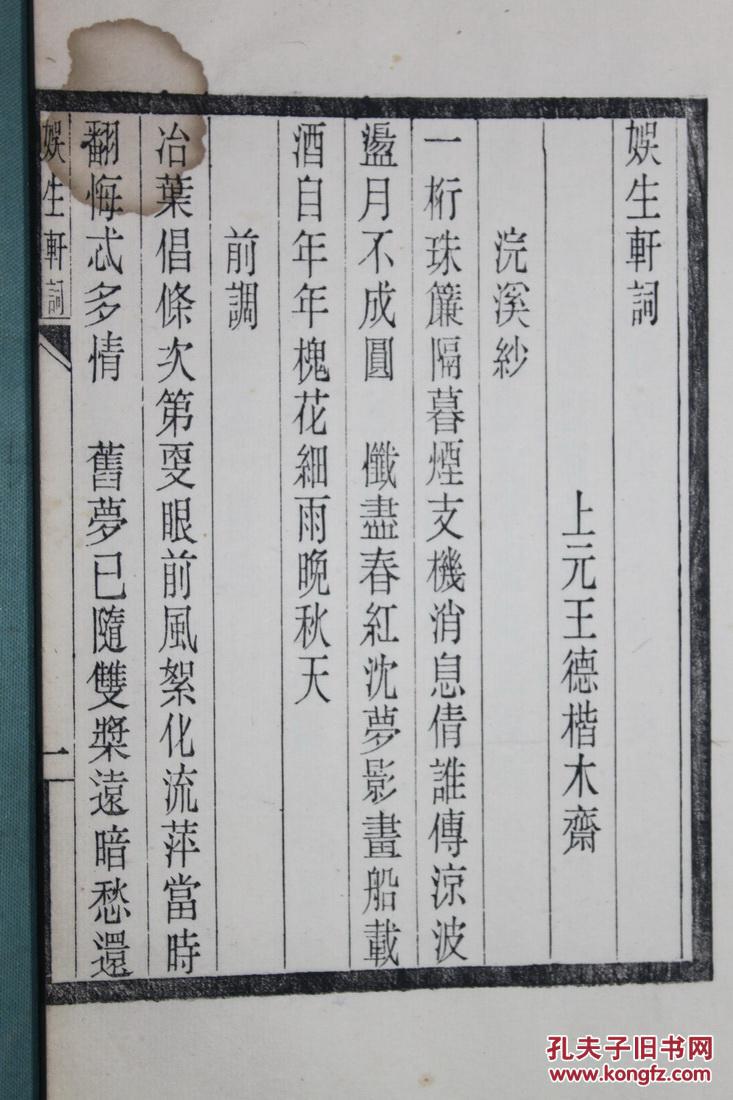 娯生軒詞
上元王德楷木齋
浣溪紗
一桁珠簾隔暮煙支機消息倩誰傳涼波
盪月不成圓　懺盡春紅沈夢影畫船載
酒自年年槐花細雨晚秋天
前調
冶葉倡條次第更眼前風絮化流萍當時
翻悔忒多情　舊夢已隨雙槳遠暗愁還
娯生軒詞
一
孔夫子旧书网
www.kongfz.com